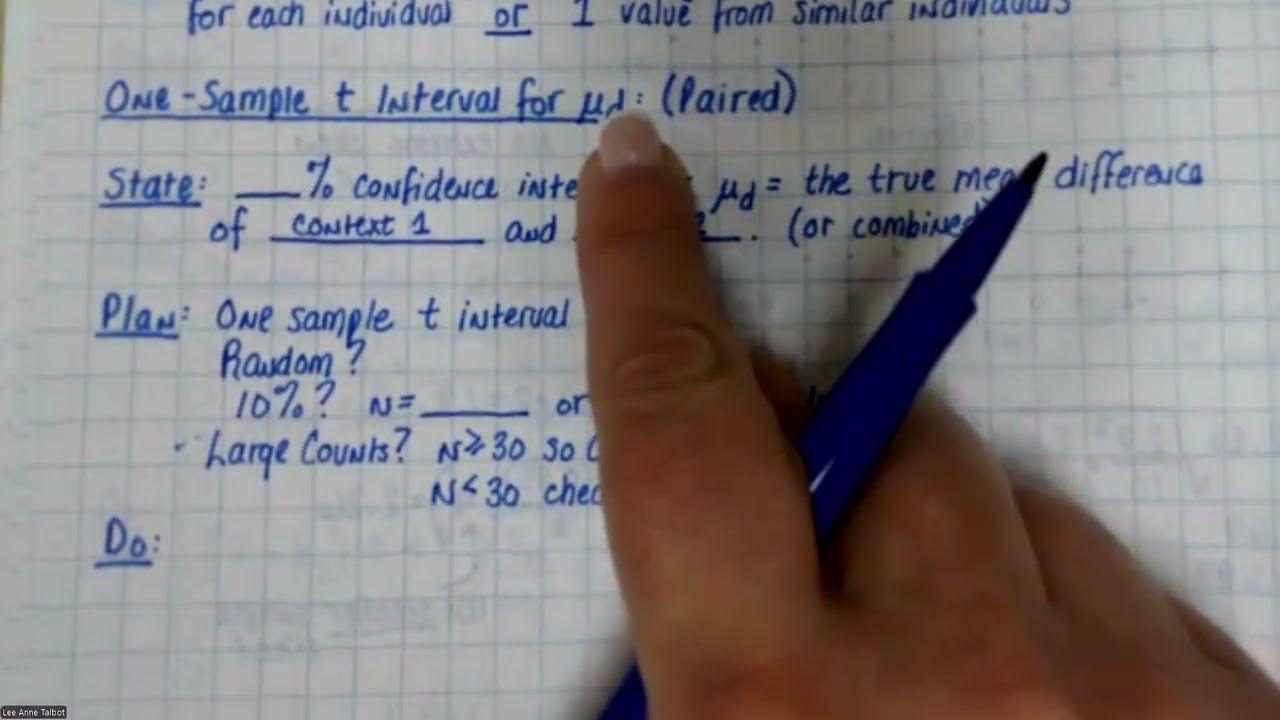 for each individual or 1 value from similar individuals
One-Sample t Interval for μd: (Paired)
State: ___% confidence inte μd = the true mea difference
of context 1 and . (or combined
Plan: One sample t interval
Random?
10%? N=______ or
Large Counts? N≥30 so
N<30 chec
Do:
Lee Anne Talbot